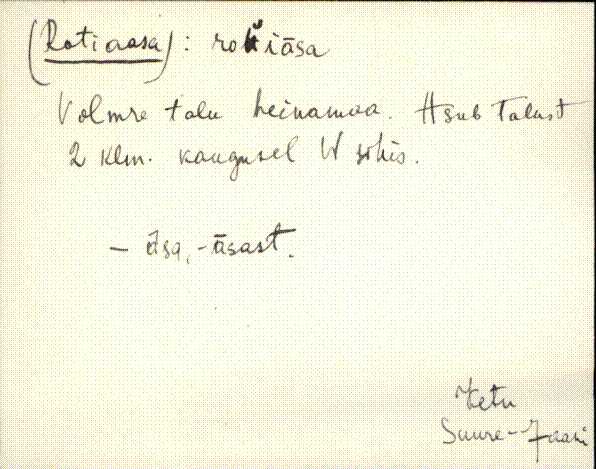 (Rotiaasa): rot̆iāsa
Volmre talu heinamaa. Asub talust
2 klm. kaugusel W sihis.
– āsa, -āsast.
Vetu
Suure-Jaani